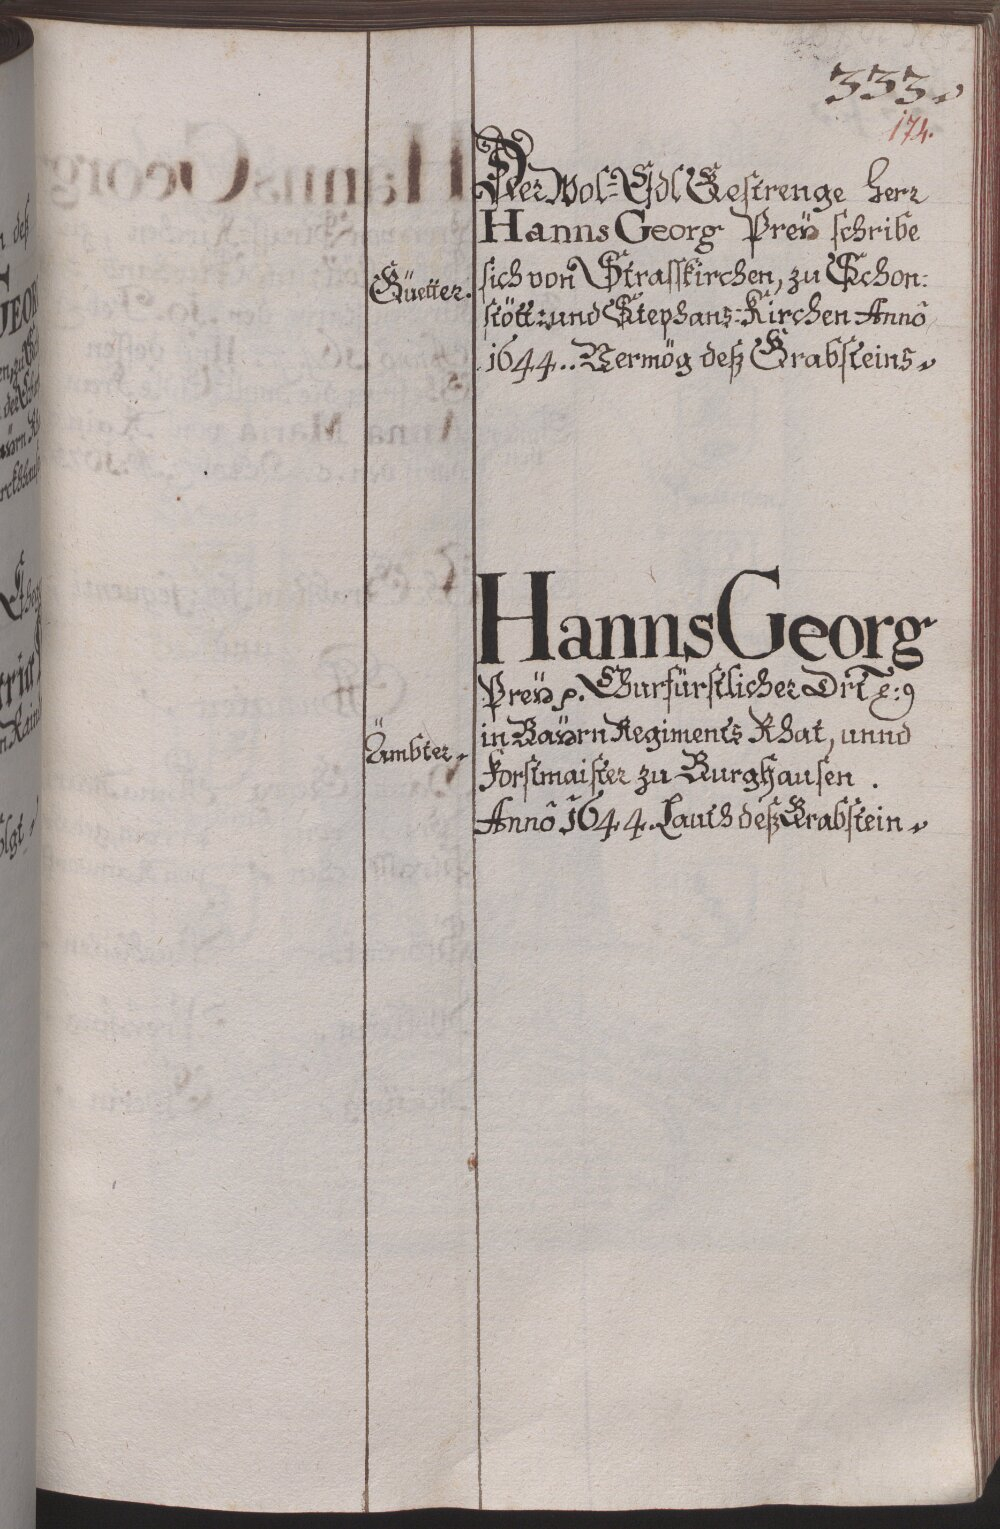 333.
174.
Der Wol-Edl Gestrenge Herr
Hanns Georg Preÿ schribe
Güetter. sich von Strasskirchen, zu Schon:
stött: und Stephans-Kirchen Annô
1644.. Vermög deß Grabsteins.
Hanns Georg
Preÿ p. Churfürstlicher Drt
Ämbter. in Baÿrn Regiments Rhat, unnd
forstmaister zu Burghausen.
Annô 1644. Lauth deß Grabstein.